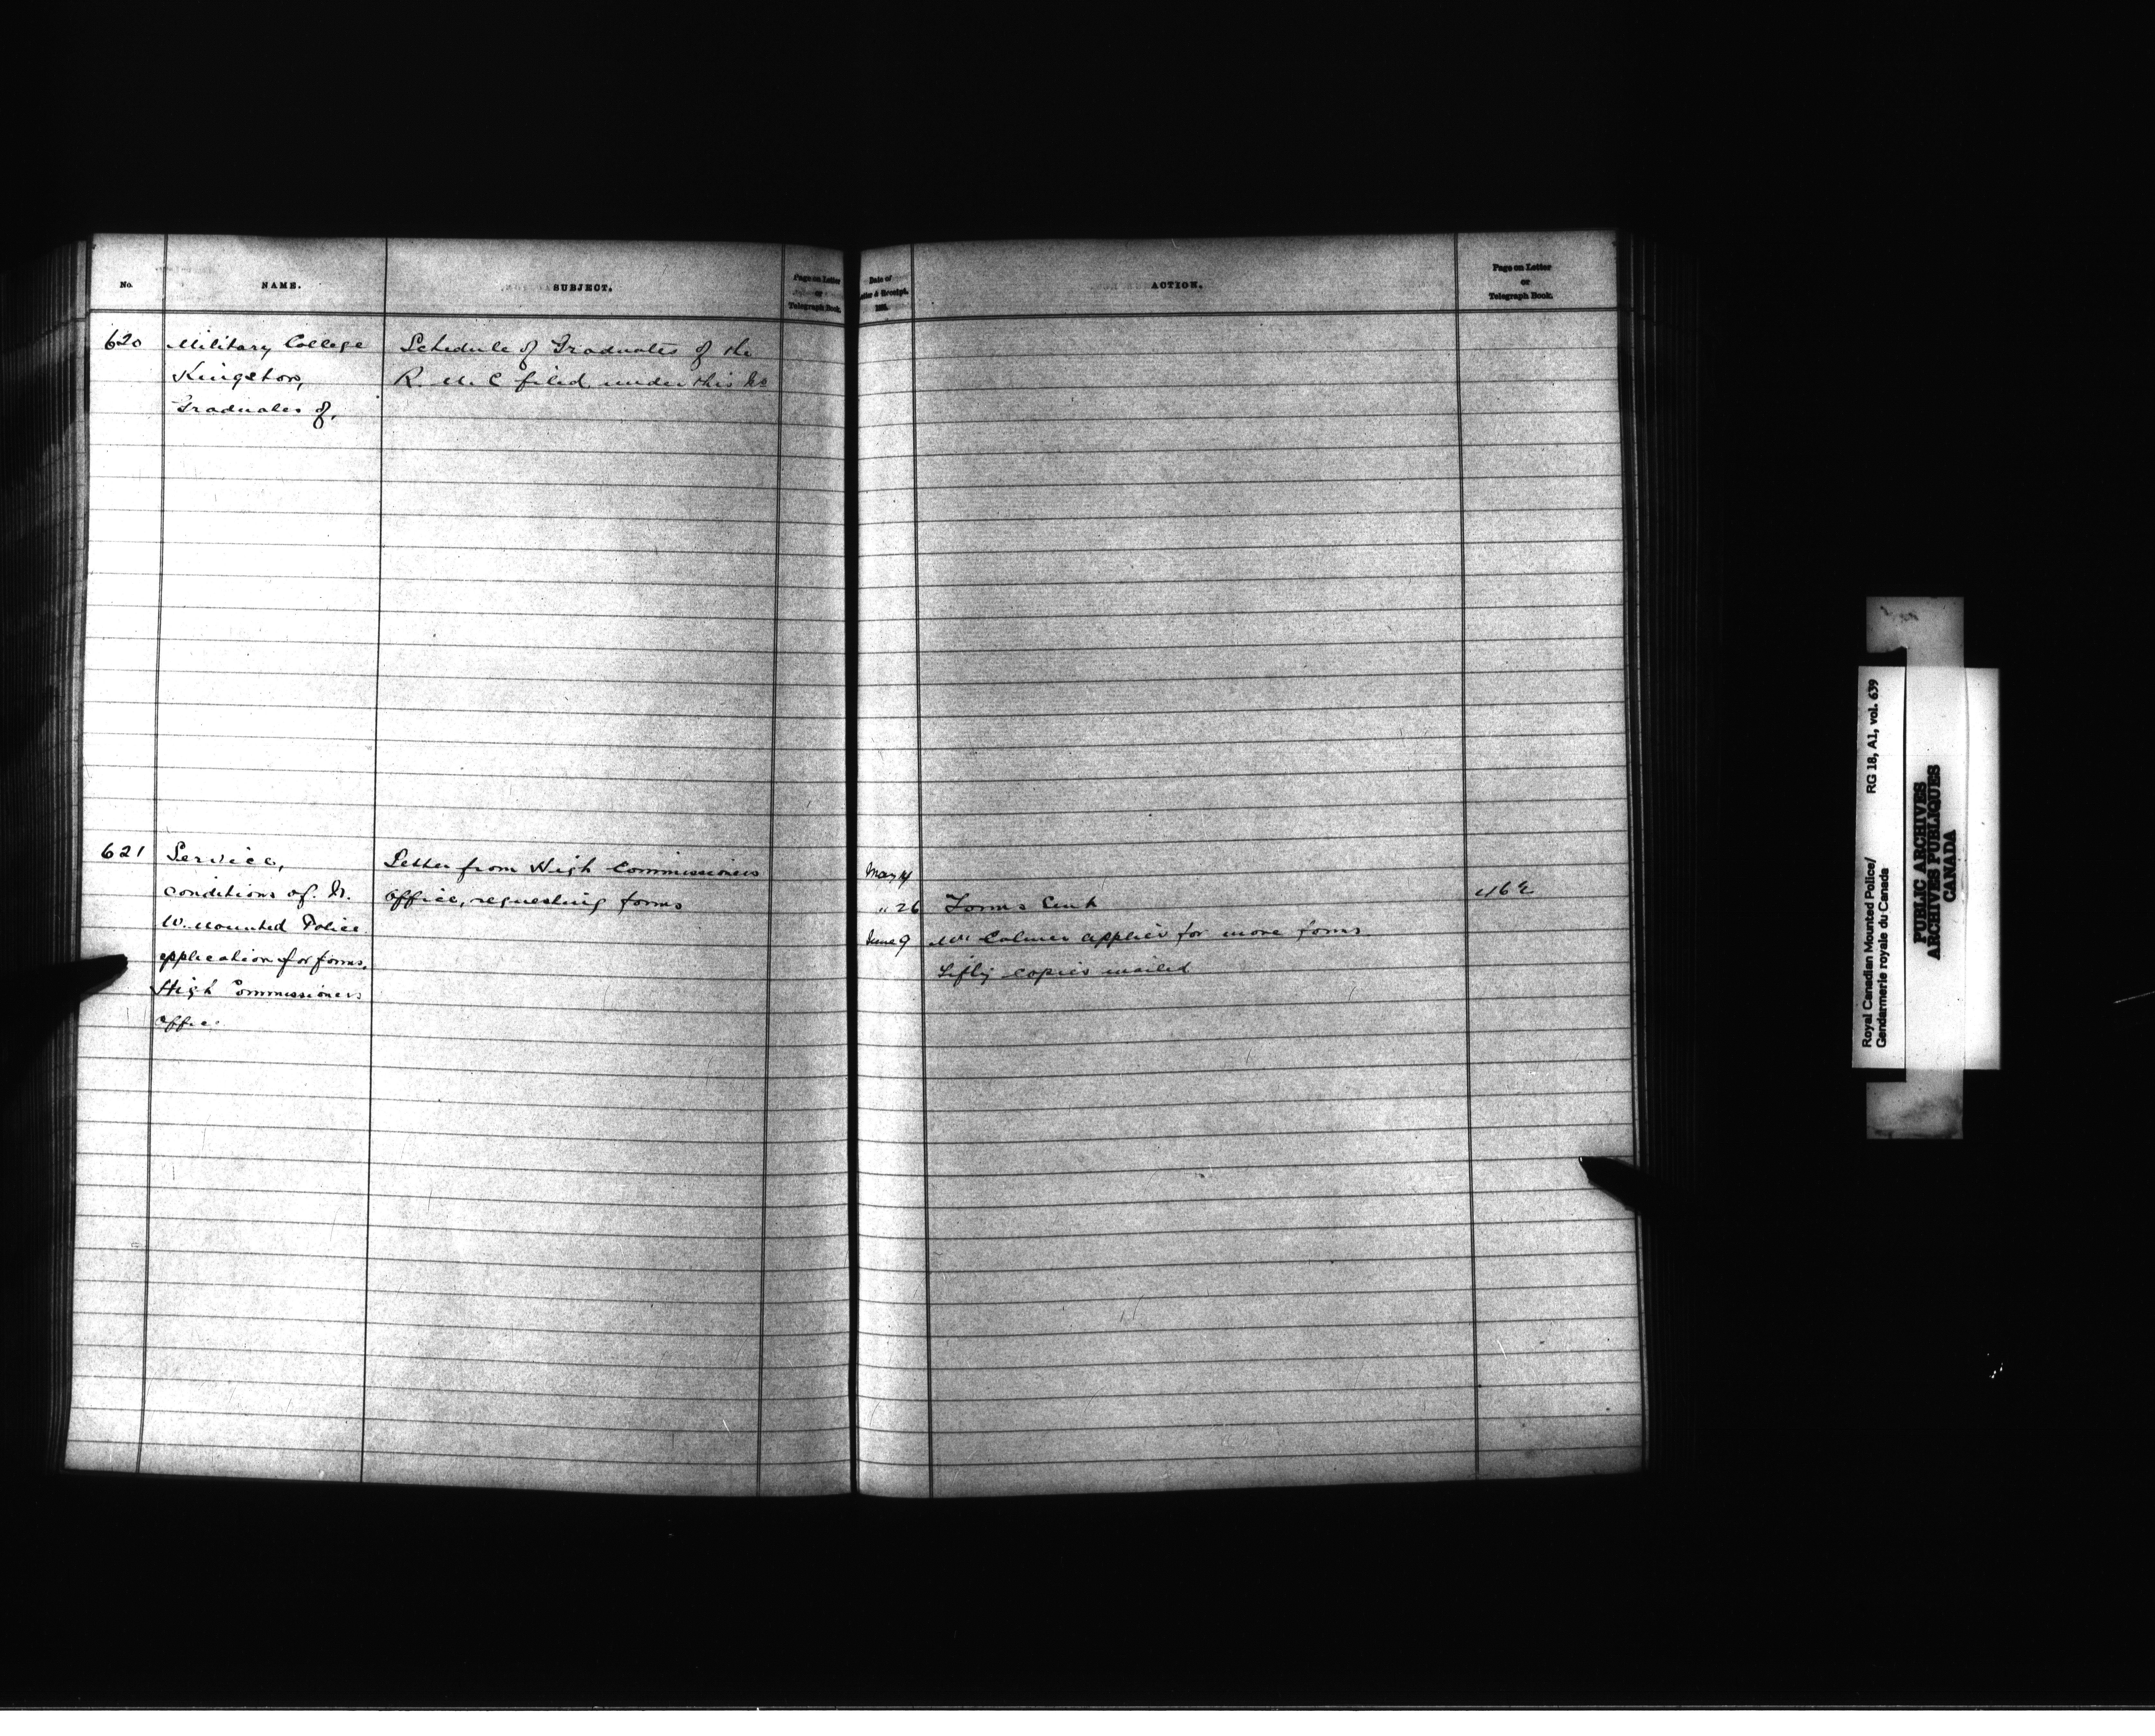 No.
NAME.
SUBJECT.
Page on Letter
or
Telegraph Book.
620
Military College
Kingston,
Graduates of,
Schedule of Graduates of the
R. M. C filed under this No
621
Service,
conditions of. N.
W. Mounted Police
application for forms,
High Commissioners
Office.
Letter from High Commissioners
Office, requesting forms
Date of
Letter & Receipt.
188
ACTION.
Page on Letter
or
Telegraph Book.
May 14
" 26 Forms Sent
June 9 Mr Colmer applies for more forms
Fifty copies mailed
Royal Canadian Mounted Police/
Gendarmerie royale du Canada
RG 18, A1, vol. 639
PUBLIC ARCHIVES
ARCHIVES PUBLIQUES
CANADA